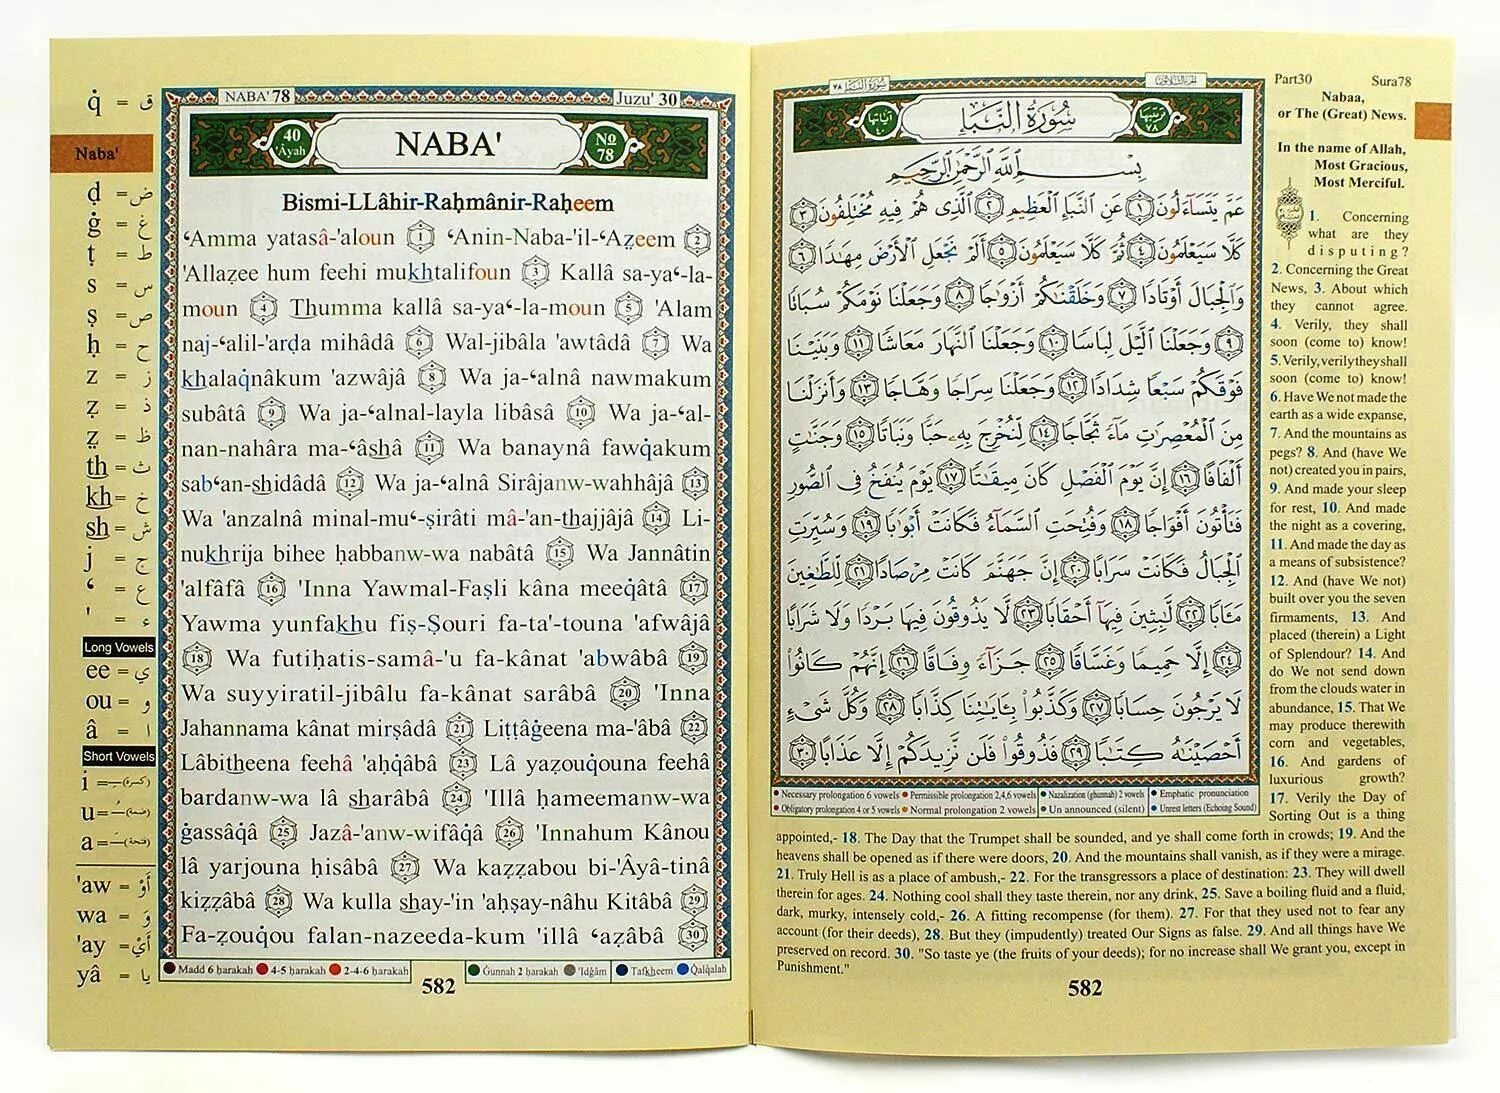 q̇ = ق
Naba'
ḍ = ض
ġ = غ
ṭ = ط
s = س
ṣ = ص
ḥ = ح
z = ز
ẓ = ذ
ẓ̤ = ظ
th = ث
kh = خ
sh = ش
j = ج
‘ = ع
' = ء
Long Vowels
ee = ي
ou = و
â = ا
Short Vowels
i = (كسرة)
u = (ضمة)
a = (فتحة)
'aw = أَوْ
wa = وَ
'ay = أَيْ
yâ = يا
NABA' 78
Juzu' 30
40 'Âyah
NABA'
№ 78
Bismi-LLâhir-Raḥmânir-Raḥeem
‘Amma yatasâ-'aloun 1 ‘Anin-Naba-'il-‘Aẓeem 2
'Allaẓee hum feehi mukhtalifoun 3 Kallâ sa-ya‘-la-
moun 4 Thumma kallâ sa-ya‘-la-moun 5 'Alam
naj-‘alil-'arḍa mihâdâ 6 Wal-jibâla 'awtâdâ 7 Wa
khalaq̇nâkum 'azwâjâ 8 Wa ja-‘alnâ nawmakum
subâtâ 9 Wa ja-‘alnal-layla libâsâ 10 Wa ja-‘al-
nan-nahâra ma-‘âshâ 11 Wa banaynâ fawq̇akum
sab‘an-shidâdâ 12 Wa ja-‘alnâ Sirâjanw-wahhâjâ 13
Wa 'anzalnâ minal-mu‘-ṣirâti mâ-'an-thajjâjâ 14 Li-
nukhrija bihee ḥabbanw-wa nabâtâ 15 Wa Jannâtin
'alfâfâ 16 'Inna Yawmal-Faṣli kâna meeq̇âtâ 17
Yawma yunfakhu fiṣ-Ṣouri fa-ta'-touna 'afwâjâ
18 Wa futiḥatis-samâ-'u fa-kânat 'abwâbâ 19
Wa suyyiratil-jibâlu fa-kânat sarâbâ 20 'Inna
Jahannama kânat mirṣâdâ 21 Liṭṭâġeena ma-'âbâ 22
Lâbitheena feehâ 'aḥq̇âbâ 23 Lâ yaẓouq̇ouna feehâ
bardanw-wa lâ sharâbâ 24 'Illâ ḥameemanw-wa
ġassâq̇â 25 Jazâ-'anw-wifâq̇â 26 'Innahum Kânou
lâ yarjouna ḥisâbâ 27 Wa kaẓẓabou bi-'Âyâ-tinâ
kiẓẓâbâ 28 Wa kulla shay-'in 'aḥṣay-nâhu Kitâbâ 29
Fa-ẓouq̇ou falan-nazeeda-kum 'illâ ‘aẓâbâ 30
Madd 6 ḥarakah 4-5 ḥarakah 2-4-6 ḥarakah
Ġunnah 2 ḥarakah 'Idġâm Tafkheem Qalqalah
582
سُورَةُ النَّبَإِ ٧٨
الجزء الثلاثون
آياتها ٤٠
سُورَةُ النَّبَإِ
ترتيبها ٧٨
بِسْمِ اللَّهِ الرَّحْمَٰنِ الرَّحِيمِ
عَمَّ يَتَسَآءَلُونَ ١ عَنِ ٱلنَّبَإِ ٱلْعَظِيمِ ٢ ٱلَّذِى هُمْ فِيهِ مُخْتَلِفُونَ ٣
كَلَّا سَيَعْلَمُونَ ٤ ثُمَّ كَلَّا سَيَعْلَمُونَ ٥ أَلَمْ نَجْعَلِ ٱلْأَرْضَ مِهَٰدًا ٦
وَٱلْجِبَالَ أَوْتَادًا ٧ وَخَلَقْنَٰكُمْ أَزْوَٰجًا ٨ وَجَعَلْنَا نَوْمَكُمْ سُبَاتًا
٩ وَجَعَلْنَا ٱلَّيْلَ لِبَاسًا ١٠ وَجَعَلْنَا ٱلنَّهَارَ مَعَاشًا ١١ وَبَنَيْنَا
فَوْقَكُمْ سَبْعًا شِدَادًا ١٢ وَجَعَلْنَا سِرَاجًا وَهَّاجًا ١٣ وَأَنزَلْنَا
مِنَ ٱلْمُعْصِرَٰتِ مَآءً ثَجَّاجًا ١٤ لِّنُخْرِجَ بِهِۦ حَبًّا وَنَبَاتًا ١٥ وَجَنَّٰتٍ
أَلْفَافًا ١٦ إِنَّ يَوْمَ ٱلْفَصْلِ كَانَ مِيقَٰتًا ١٧ يَوْمَ يُنفَخُ فِى ٱلصُّورِ
فَتَأْتُونَ أَفْوَاجًا ١٨ وَفُتِحَتِ ٱلسَّمَآءُ فَكَانَتْ أَبْوَٰبًا ١٩ وَسُيِّرَتِ
ٱلْجِبَالُ فَكَانَتْ سَرَابًا ٢٠ إِنَّ جَهَنَّمَ كَانَتْ مِرْصَادًا ٢١ لِّلطَّٰغِينَ
مَـَٔابًا ٢٢ لَّٰبِثِينَ فِيهَآ أَحْقَابًا ٢٣ لَّا يَذُوقُونَ فِيهَا بَرْدًا وَلَا شَرَابًا
٢٤ إِلَّا حَمِيمًا وَغَسَّاقًا ٢٥ جَزَآءً وِفَاقًا ٢٦ إِنَّهُمْ كَانُوا۟
لَا يَرْجُونَ حِسَابًا ٢٧ وَكَذَّبُوا۟ بِـَٔايَٰتِنَا كِذَّابًا ٢٨ وَكُلَّ شَىْءٍ
أَحْصَيْنَٰهُ كِتَٰبًا ٢٩ فَذُوقُوا۟ فَلَن نَّزِيدَكُمْ إِلَّا عَذَابًا ٣٠
Necessary prolongation 6 vowels Permissible prolongation 2,4,6 vowels Nazalization (ghunnah) 2 vowels Emphatic pronunciation
Obligatory prolongation 4 or 5 vowels Normal prolongation 2 vowels Un announced (silent) Unrest letters (Echoing Sound)
Part30 Sura78
Nabaa,
or The (Great) News.
In the name of Allah,
Most Gracious,
Most Merciful.
1. Concerning
what are they
disputing?
2. Concerning the Great
News, 3. About which
they cannot agree.
4. Verily, they shall
soon (come to) know!
5. Verily, verily they shall
soon (come to) know!
6. Have We not made the
earth as a wide expanse,
7. And the mountains as
pegs? 8. And (have We
not) created you in pairs,
9. And made your sleep
for rest, 10. And made
the night as a covering,
11. And made the day as
a means of subsistence?
12. And (have We not)
built over you the seven
firmaments, 13. And
placed (therein) a Light
of Splendour? 14. And
do We not send down
from the clouds water in
abundance, 15. That We
may produce therewith
corn and vegetables,
16. And gardens of
luxurious growth?
17. Verily the Day of
Sorting Out is a thing
appointed,- 18. The Day that the Trumpet shall be sounded, and ye shall come forth in crowds; 19. And the
heavens shall be opened as if there were doors, 20. And the mountains shall vanish, as if they were a mirage.
21. Truly Hell is as a place of ambush,- 22. For the transgressors a place of destination: 23. They will dwell
therein for ages. 24. Nothing cool shall they taste therein, nor any drink, 25. Save a boiling fluid and a fluid,
dark, murky, intensely cold,- 26. A fitting recompense (for them). 27. For that they used not to fear any
account (for their deeds), 28. But they (impudently) treated Our Signs as false. 29. And all things have We
preserved on record. 30. "So taste ye (the fruits of your deeds); for no increase shall We grant you, except in
Punishment."
582